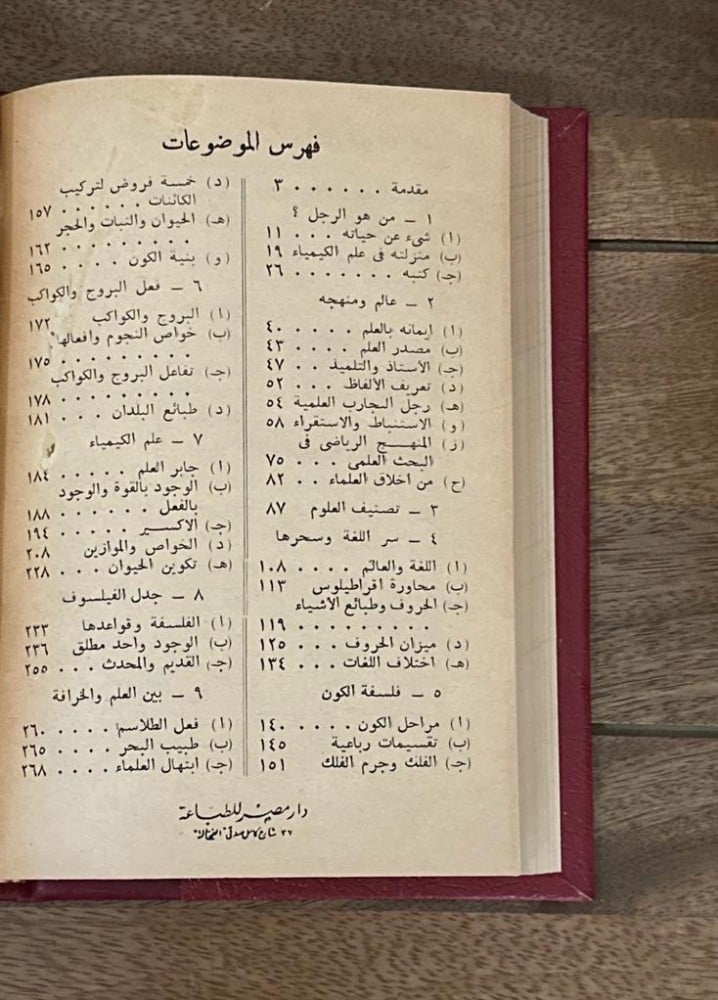 فهرس الموضوعات
مقدمة . . . . . . ٣
١ ــ من هو الرجل ؟
(ا) شىء عن حياته . . . ١١
(ب) منزلته فى علم الكيمياء ١٩
(جـ) كتبه . . . . . . . ٢٦
٢ ــ عالم ومنهجه
(ا) إيمانه بالعلم . . . . ٤٠
(ب) مصدر العلم . . . . ٤٣
(جـ) الأستاذ والتلميذ . . ٤٧
(د) تعريف الألفاظ . . . ٥٢
(هـ) رجل التجارب العلمية ٥٤
(و) الاستنباط والاستقراء ٥٨
(ز) المنهـج الرياضى فى
البحث العلمى . . . ٧٥
(ح) من اخلاق العلماء . . ٨٢
٣ ــ تصنيف العلوم ٨٧
٤ ــ سر اللغة وسحرها
(ا) اللغة والعالم . . . ١٠٨
(ب) محاورة اقراطيلوس ١١٣
(جـ) الحروف وطبائع الأشياء
. . . . . . . . . ١١٩
(د) ميزان الحروف . . . ١٢٥
(هـ) اختلاف اللغات . . ١٣٤
٥ ــ فلسفة الكون
(ا) مراحل الكون . . . . ١٤٠
(ب) تقسيمات رباعية ١٤٥
(جـ) الفلك وجرم الفلك ١٥١
(د) خمسة فروض لتركيب
الكائنات . . . . . . ١٥٧
(هـ) الحيوان والنبات والحجر
. . . . . . . . . ١٦٢
(و) بنية الكون . . . . ١٦٥
٦ ــ فعل البروج والكواكب
(ا) البروج والكواكب ١٧٢
(ب) خواص النجوم وافعالها
. . . . . . . . . ١٧٥
(جـ) تفاعل البروج والكواكب
. . . . . . . . . ١٧٨
(د) طبائع البلدان . . . ١٨١
٧ ــ علم الكيمياء
(ا) جابر العلم . . . . . ١٨٤
(ب) الوجود بالقوة والوجود
بالفعل . . . . . . ١٨٨
(جـ) الإكسـير . . . . . ١٩٤
(د) الخواص والموازين ٢٠٨
(هـ) تكوين الحيوان . . . ٢٢٨
٨ ــ جدل الفيلسوف
(ا) الفلسفة وقواعدها ٢٣٣
(ب) الوجود واحد مطلق ٢٣٦
(جـ) القديم والمحدث . . . ٢٥٥
٩ ــ بين العلم والخرافة
(ا) فعل الطلاسم . . . . ٢٦٠
(ب) طبيب البحر . . . . ٢٦٥
(جـ) ابتهال العلماء . . . . ٢٦٨
دار مصر للطباعة
٣٧ شارع كامل صدقى "الفجالة"